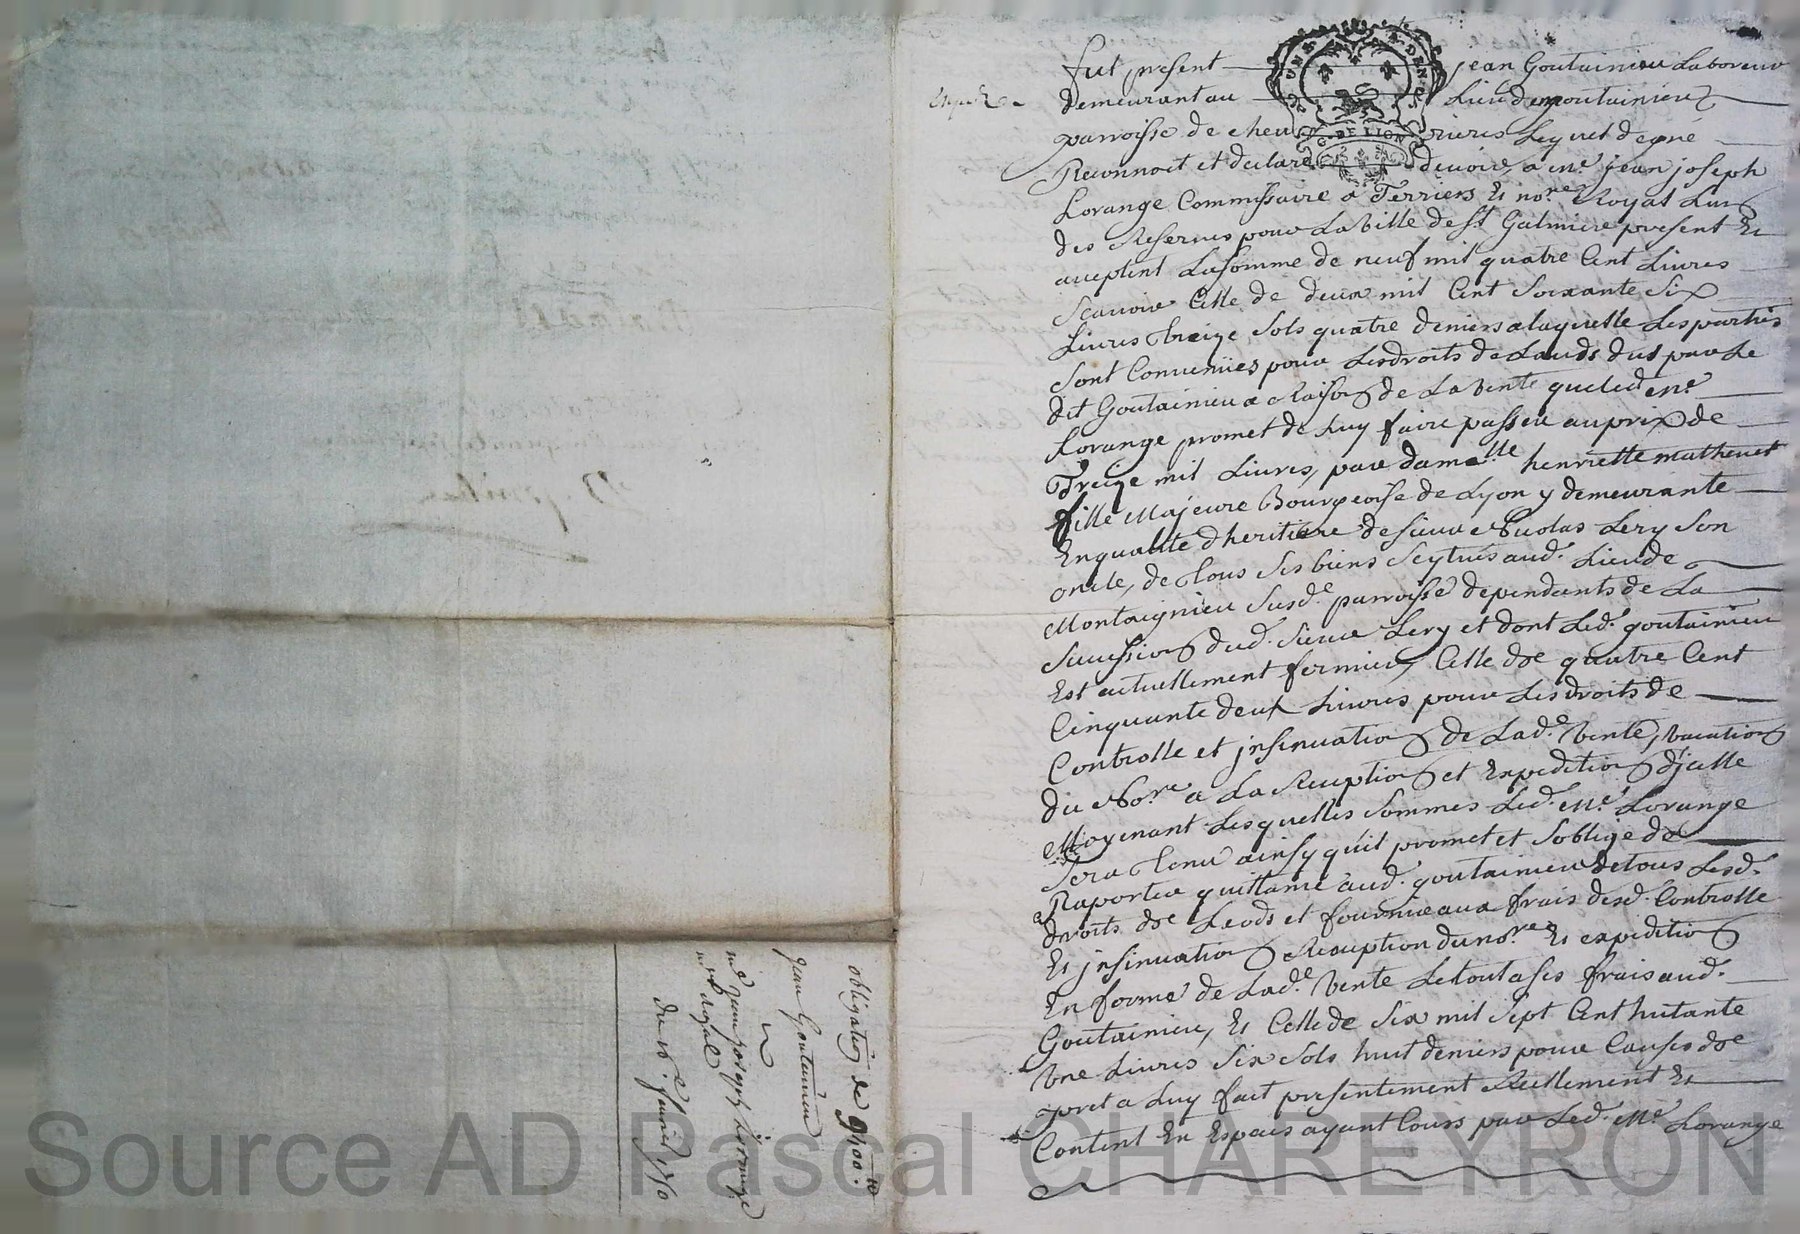 fut present jean Goutainieu Laboreur
demeurant au Lieu de goutainieu
parroisse de chevrieres Lequel de gré
Reconnoit et declare devoir, a me. jean joseph
Lorange Commissaire a Terriers Et nore. Royal L'un
des Reservés pour La Ville de st. Galmier present Et
aceptent La somme de neuf mil quatre Cent Livres
Scavoir Celle de deux mil Cent Soixante Six
Livres treize Sols quatre deniers a laquelle Les parties
Sont Convenües pour Les droits de Lauds dus par Le
dit Goutainieu a raison de La Vente que led. me.
Lorange promet de Luy faire passer au prix de
Treize mil Livres, par damelle. henriette mathevet
fille Majeure Bourgeoise de Lyon y demeurante
En qualité d'heritiere de sieur Nicolas Lery Son
oncle, de tous Ses biens Scytués aud. Lieu de
Montaignieu Susde. parroisse dependants de La
Succession dud. Sieur Lery et dont Led. goutainieu
Est actuellement fermier, Celle de quatre Cent
Cinquante deux Livres pour Les droits de
Controlle et jnsinuation de Lade. Vente, vacation
du Nore. a La Reception et Expedition d'jcelle
Moyenant Lesquelles Sommes Led. Me. Lorange
Sera tenu ainsy qu'il promet et S'oblige de
Raporter quittance aud. goutainieu de tous Lesd.
droits de Leods et fournir aux frais desd. Controlle
Et jnsinuation Reception du nore. Et expedition
En forme de Lade. Vente Le tout a ses frais aud.
Goutainieu, Et Celle de Six mil Sept Cent huitante
Une Livres Six Sols huit deniers pour Causes de
pret a Luy fait presentement Reellement Et
Content En Especes ayant Cours par Led. Me. Lorange
obligation de 9400.
jean Goutainieu
a
me jean joseph Lorange
nre Royal
du fevrier 1750
Source AD Pascal CHAREYRON